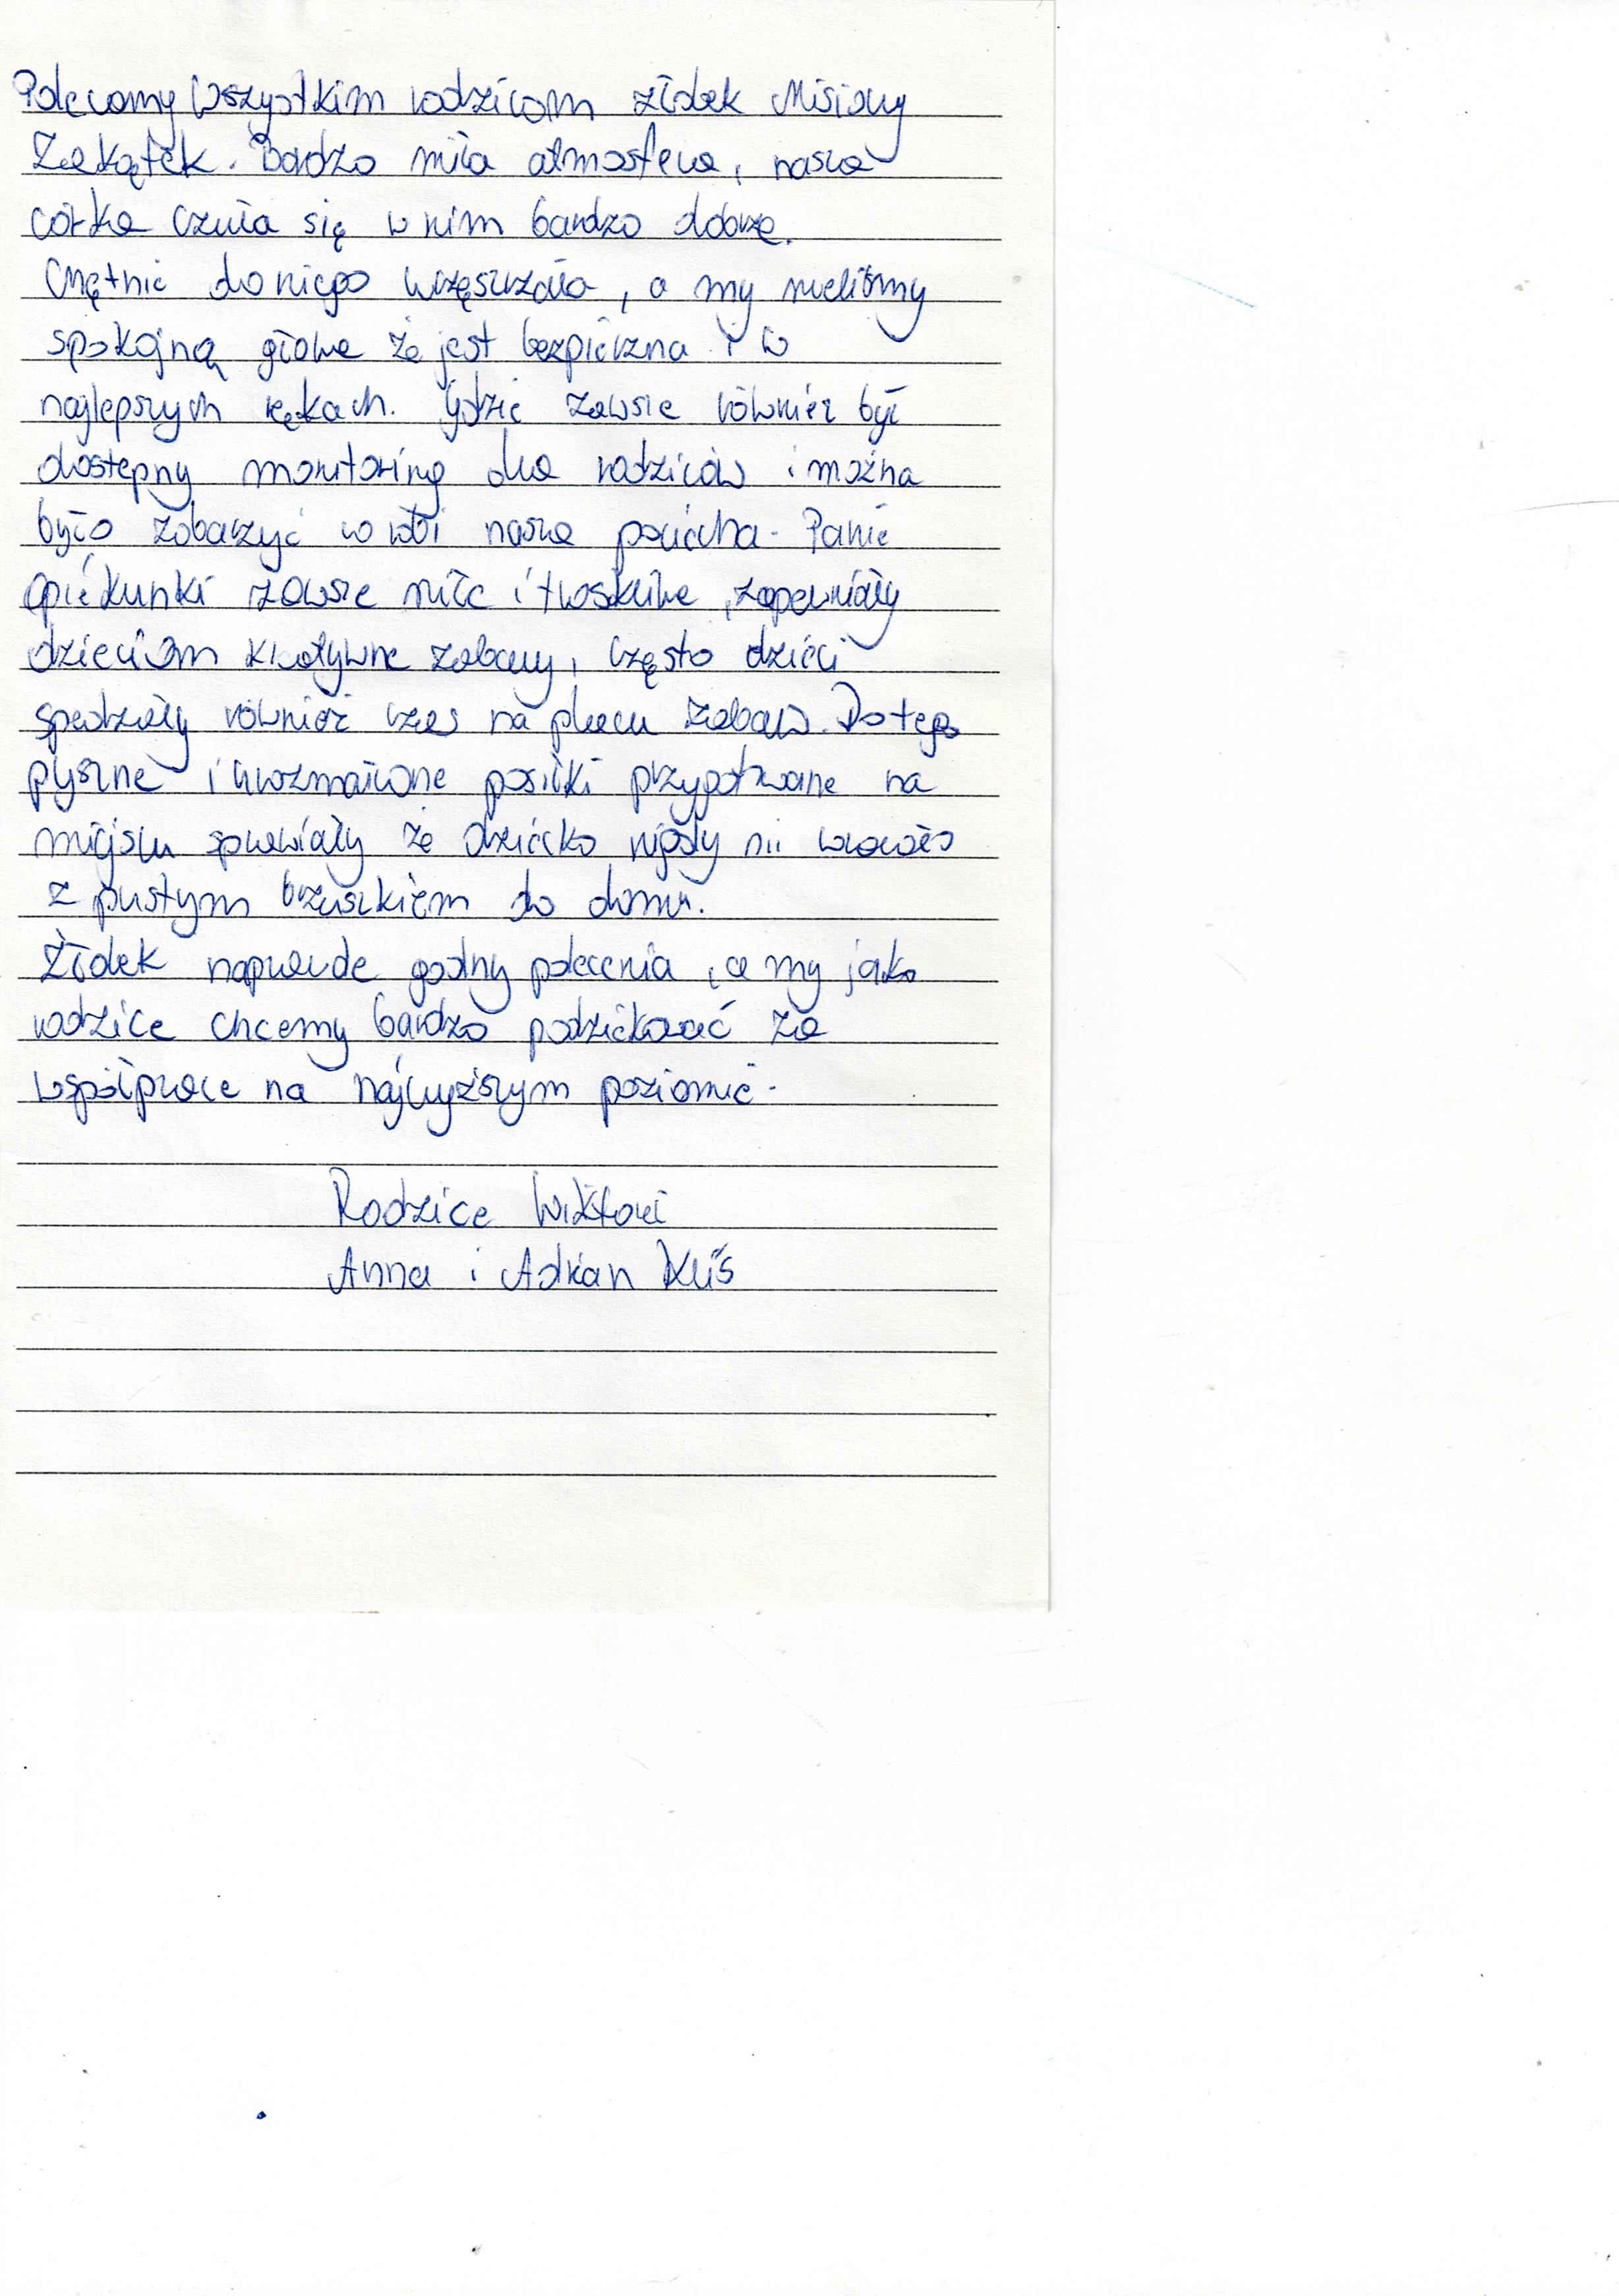 Polecamy wszystkim rodzicom żłobek Misiowy
Zakątek. Bardzo miła atmosfera, nasza
córka czuła się w nim bardzo dobrze.
Chętnie do niego uczęszczała, a my mieliśmy
spokojną głowę że jest bezpieczna i w
najlepszych rękach. Gdzie zawsze również był
dostępny monitoring dla rodziców i można
było zobaczyć co robi nasza pociecha. Panie
opiekunki zawsze miłe i troskliwe, zapewniały
dzieciom kreatywne zabawy, często dzieci
spędzały również czas na placu zabaw. Do tego
pyszne i urozmaicone posiłki przygotowane na
miejscu sprawiały że dziecko nigdy nie wracało
z pustym brzuszkiem do domu.
Żłobek naprawdę godny polecenia, a my jako
rodzice chcemy bardzo podziękować za
współprace na najwyższym poziomie.
Rodzice Wiktorii
Anna i Adrian Kliś